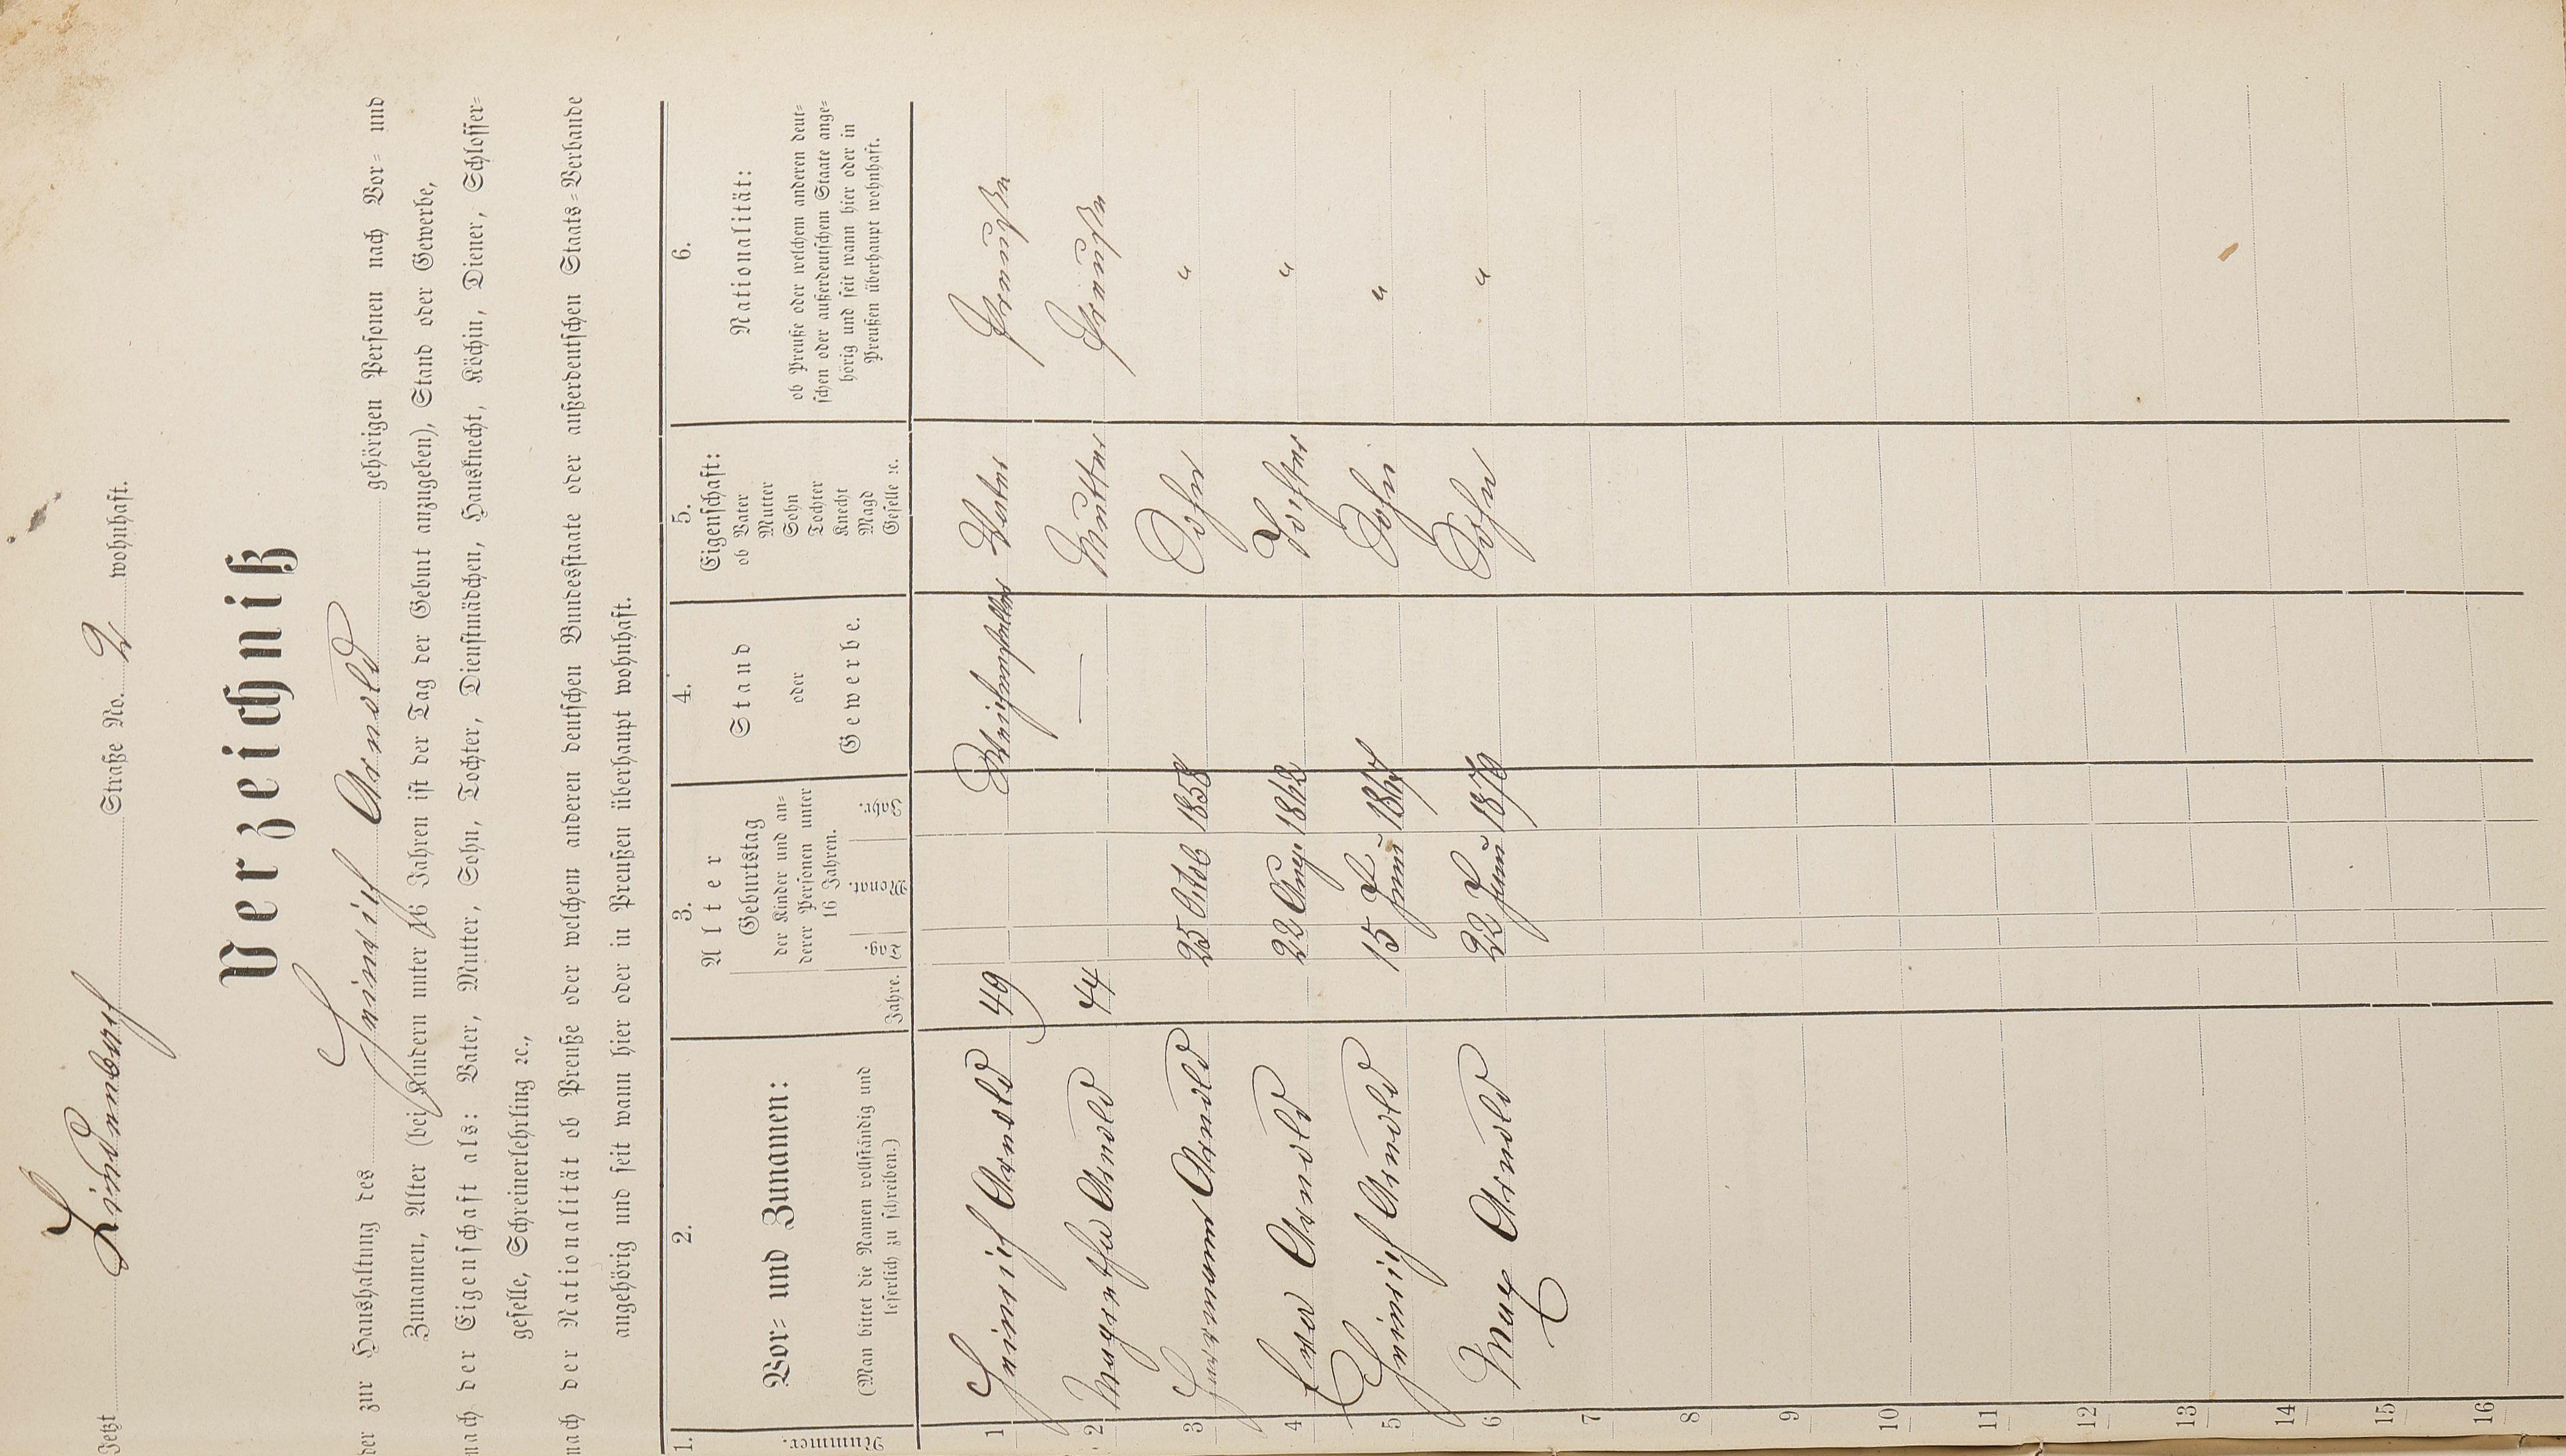 Jetzt Lindenborn Straße No. 2 wohnhaft.
Verzeichniß
der zur Haushaltung des Heinrich Arnold gehörigen Personen nach Vor= und
Zunamen, Alter (bei Kindern unter 16 Jahren ist der Tag der Geburt anzugeben), Stand oder Gewerbe,
nach der Eigenschaft als: Vater, Mutter, Sohn, Tochter, Dienstmädchen, Hausknecht, Köchin, Diener, Schlosser=
geselle, Schreinerlehrling ꝛc.,
nach der Nationalität ob Preuße oder welchem anderen deutschen Bundesstaate oder außerdeutschen Staats=Verbande
angehörig und seit wann hier oder in Preußen überhaupt wohnhaft.
1. 2. 3. 4. 5. 6.
Nummer.
Vor= und Zunamen:
(Man bittet die Namen vollständig und
leserlich zu schreiben.)
Alter
Geburtstag
der Kinder und an=
derer Personen unter
16 Jahren.
Jahre. Tag. Monat. Jahr.
Stand
oder
Gewerbe.
Eigenschaft:
ob Vater
Mutter
Sohn
Tochter
Knecht
Magd
Geselle ꝛc.
Nationalität:
ob Preuße oder welchem anderen deut=
schen oder außerdeutschem Staate ange=
hörig und seit wann hier oder in
Preußen überhaupt wohnhaft.
1 Heinrich Arnold 49 Vater Preuße
2 Magretha Arnold 44 — Mutter Preuße
3 Herrmann Arnold 25 Octob 1858 Sohn "
4 Eva Arnold 22 Aug 1862 Tochter "
5 Heinrich Arnold 15 Juni 1867 Sohn "
6 Max Arnold 22 Juni 1870 Sohn "
7
8
9
10
11
12
13
14
15
16